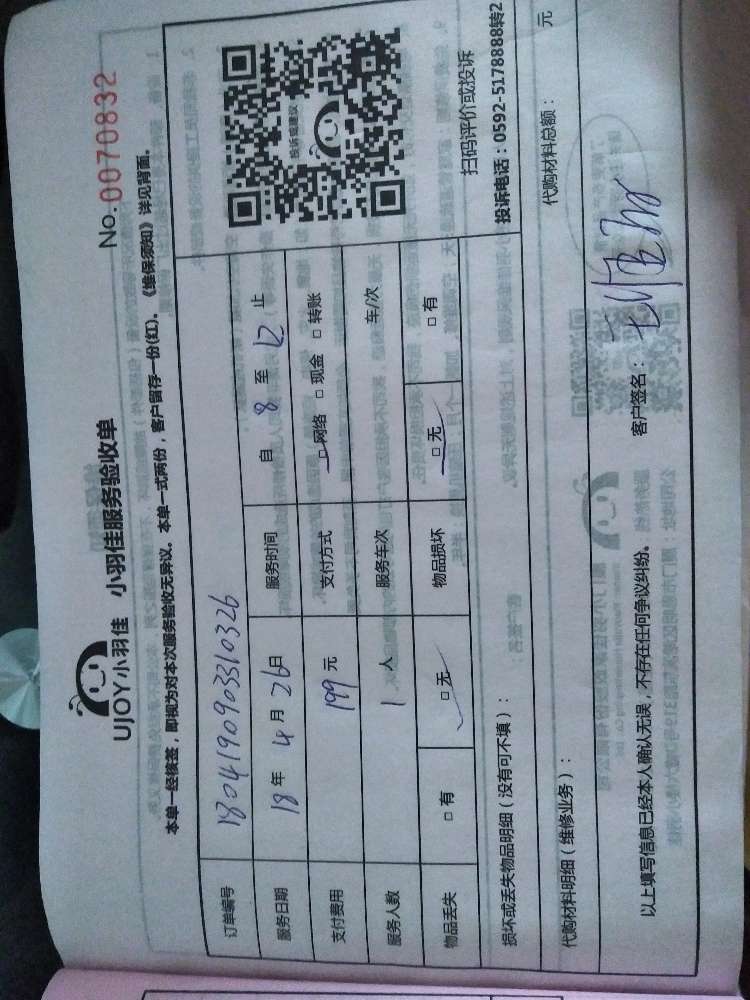 UJOY小羽佳 小羽佳服务验收单
No. 0070832
本单一经核签，即视为对本次服务验收无异议。本单一式两份，客户留存一份(红)。《维保须知》详见背面。
订单编号 1804190903310326
服务日期 18 年 4 月 26 日 服务时间 自 8 至 12 止
支付费用 199 元 支付方式 □网络 □现金 □转账
服务人数 1 人 服务车次 车/次
物品丢失 □有 □无 物品损坏 □无 □有
投诉或建议
扫码评价或投诉
投诉电话：0592-5178888转2
损坏或丢失物品明细（没有可不填）：
代购材料明细（维修业务）： 代购材料总额： 元
以上填写信息已经本人确认无误，不存在任何争议纠纷。 客户签名：